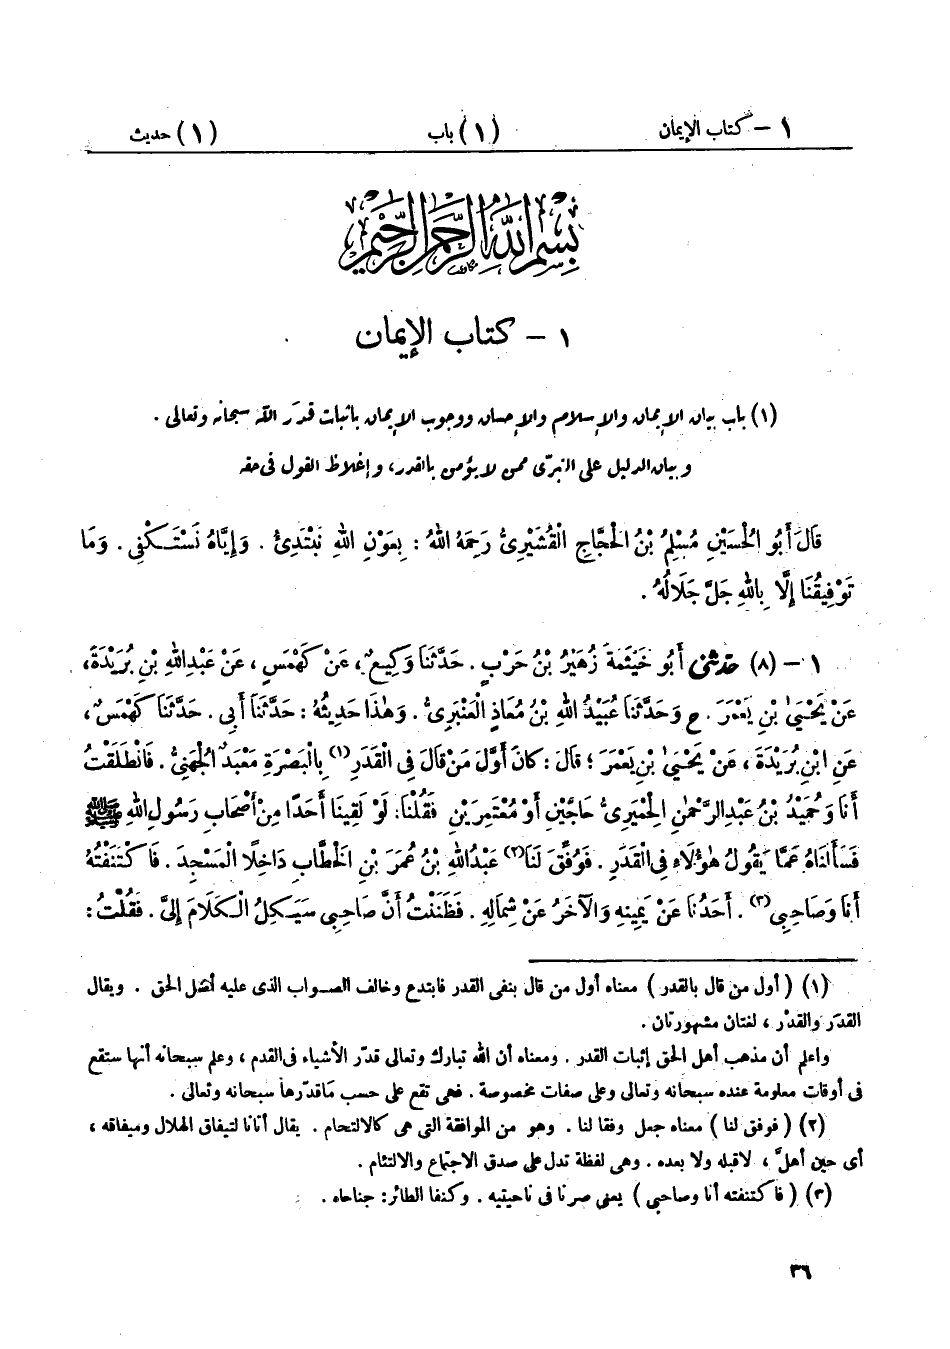 ١ – كتاب الإيمان (١) باب (١) حديث
بسم الله الرحمن الرحيم
١ – كتاب الإيمان
(١) باب بيان الإيمان والإسلام والإحسان ووجوب الإيمان بإثبات قدَر الله سبحانه وتعالى .
وبيان الدليل على التبرّى ممن لا يؤمن بالقدر، وإغلاظ القول فى حقه
قَالَ أَبُو الْحُسَيْنِ مُسْلِمُ بْنُ الْحَجَّاجِ الْقُشَيْرِىُّ رَحِمَهُ اللهُ : بِعَوْنِ اللهِ نَبْتَدِئُ . وَإِيَّاهُ نَسْتَكْفِى . وَمَا
تَوْفِيقُنَا إِلَّا بِاللهِ جَلَّ جَلَالُهُ .
١ – (٨) حَدَّثَنِى أَبُو خَيْثَمَةَ زُهَيْرُ بْنُ حَرْبٍ . حَدَّثَنَا وَكِيعٌ ، عَنْ كَهْمَسٍ ، عَنْ عَبْدِ اللهِ بْنِ بُرَيْدَةَ ،
عَنْ يَحْيَىٰ بْنِ يَعْمَرَ . ح وَحَدَّثَنَا عُبَيْدُ اللهِ بْنُ مُعَاذٍ الْعَنْبَرِىُّ . وَهٰذَا حَدِيثُهُ : حَدَّثَنَا أَبِى . حَدَّثَنَا كَهْمَسٌ ،
عَنِ ابْنِ بُرَيْدَةَ ، عَنْ يَحْيَىٰ بْنِ يَعْمَرَ ؛ قَالَ : كَانَ أَوَّلَ مَنْ قَالَ فِى الْقَدَرِ(١) بِالْبَصْرَةِ مَعْبَدٌ الْجُهَنِىُّ . فَانْطَلَقْتُ
أَنَا وَحُمَيْدُ بْنُ عَبْدِ الرَّحْمٰنِ الْحِمْيَرِىُّ حَاجَّيْنِ أَوْ مُعْتَمِرَيْنِ فَقُلْنَا: لَوْ لَقِينَا أَحَدًا مِنْ أَصْحَابِ رَسُولِ اللهِ ﷺ
فَسَأَلْنَاهُ عَمَّا يَقُولُ هٰؤُلَاءِ فِى الْقَدَرِ . فَوُفِّقَ لَنَا(٢) عَبْدُ اللهِ بْنُ عُمَرَ بْنِ الْخَطَّابِ دَاخِلًا الْمَسْجِدَ . فَاكْتَنَفْتُهُ
أَنَا وَصَاحِبِى(٣) . أَحَدُنَا عَنْ يَمِينِهِ وَالْآخَرُ عَنْ شِمَالِهِ . فَظَنَنْتُ أَنَّ صَاحِبِى سَيَكِلُ الْكَلَامَ إِلَىَّ . فَقُلْتُ :
(١) ( أول من قال بالقدر ) معناه أول من قال بنفى القدر فابتدع وخالف الصواب الذى عليه أهل الحق . ويقال
القدَر والقدْر ، لغتان مشهورتان .
واعلم أن مذهب أهل الحق إثبات القدر . ومعناه أن الله تبارك وتعالى قدّر الأشياء فى القدم ، وعلم سبحانه أنها ستقع
فى أوقات معلومة عنده سبحانه وتعالى وعلى صفات مخصوصة . فهى تقع على حسب ما قدّرها سبحانه وتعالى .
(٢) ( فوفق لنا ) معناه جعل وفقا لنا . وهو من الموافقة التى هى كالالتحام . يقال أتانا لتيفاق الهلال وميفاقه ،
أى حين أهلّ ، لا قبله ولا بعده . وهى لفظة تدل على صدق الاجتماع والالتئام .
(٣) ( فاكتنفته أنا وصاحبى ) يعنى صرنا فى ناحيتيه . وكنفا الطائر: جناحاه .
٣٦